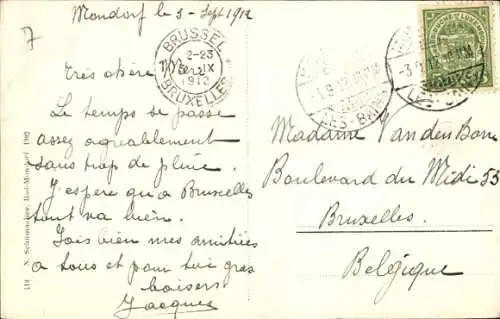 7
Mondorf le 3 - Sept 1912
Très chère Merc
Le temps se passe
assez agréablement
sans trop de pluie.
J'espère qu'a Bruxelles
tout va bien.
Fais bien mes amitiés
a tous et pour toi gros
baisers
Jacques
BRUSSEL
2-23
IX
1912
BRUXELLES
LES-BAINS
Madame Van den Born
Boulevard du Midi 53
Bruxelles.
Belgique
N. Schumacher,